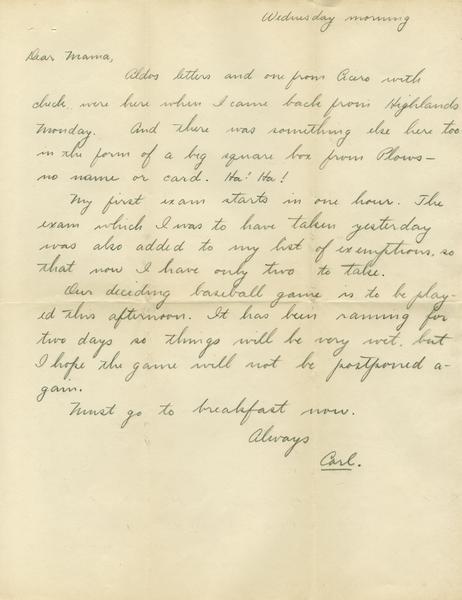 Wednesday morning
Dear Mama,
Aldos letters and one from Cicero with
check, were here when I came back from Highlands
Monday. And there was something else here too
in the form of a big square box from Plows—
no name or card. Ha! Ha!
My first exam starts in one hour. The
exam which I was to have taken yesterday
was also added to my list of exemptions, so
that now I have only two to take.
Our deciding baseball game is to be play-
ed this afternoon. It has been raining for
two days so things will be very wet, but
I hope the game will not be postponed a-
gain.
Must go to breakfast now.
Always
Carl.